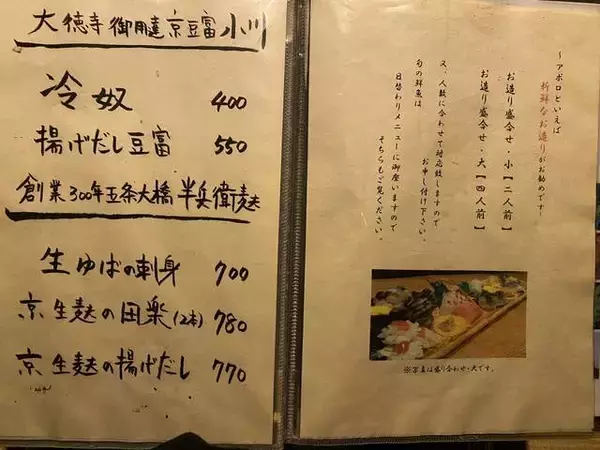 大徳寺御用達京豆富小川
冷奴 400
揚げだし豆富 550
創業300年五条大橋 半兵衛麸
生ゆばの刺身 700
京生麸の田楽(2本) 780
京生麸の揚げだし 770
~アポロといえば
新鮮なお造りがお勧めです!
お造り盛合せ・小【二人前】
お造り盛合せ・大【四人前】
又、人数に合わせて対応致しますので
お申し付け下さい。
旬の鮮魚は、
日替わりメニューに御座いますので
そちらもご覧ください。
※写真は盛り合わせ・大です。